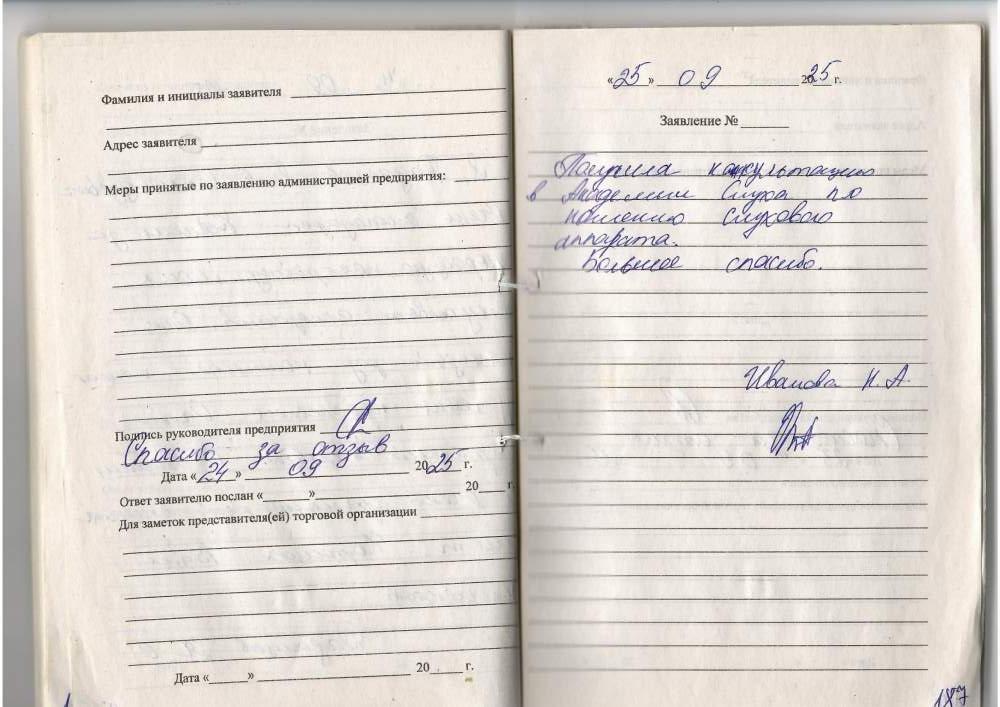 Фамилия и инициалы заявителя
Адрес заявителя
Меры принятые по заявлению администрацией предприятия:
Подпись руководителя предприятия
Спасибо за отзыв
Дата «24» 09 2025 г.
Ответ заявителю послан «______»______ 20____ г.
Для заметок представителя(ей) торговой организации
Дата «______» ______ 20_____ г.
«25» 09 2025 г.
Заявление № _______
Получила консультацию
в Академии Слуха по
ношению слухового
аппарата.
Большое спасибо.
Иванова Н. А.
187